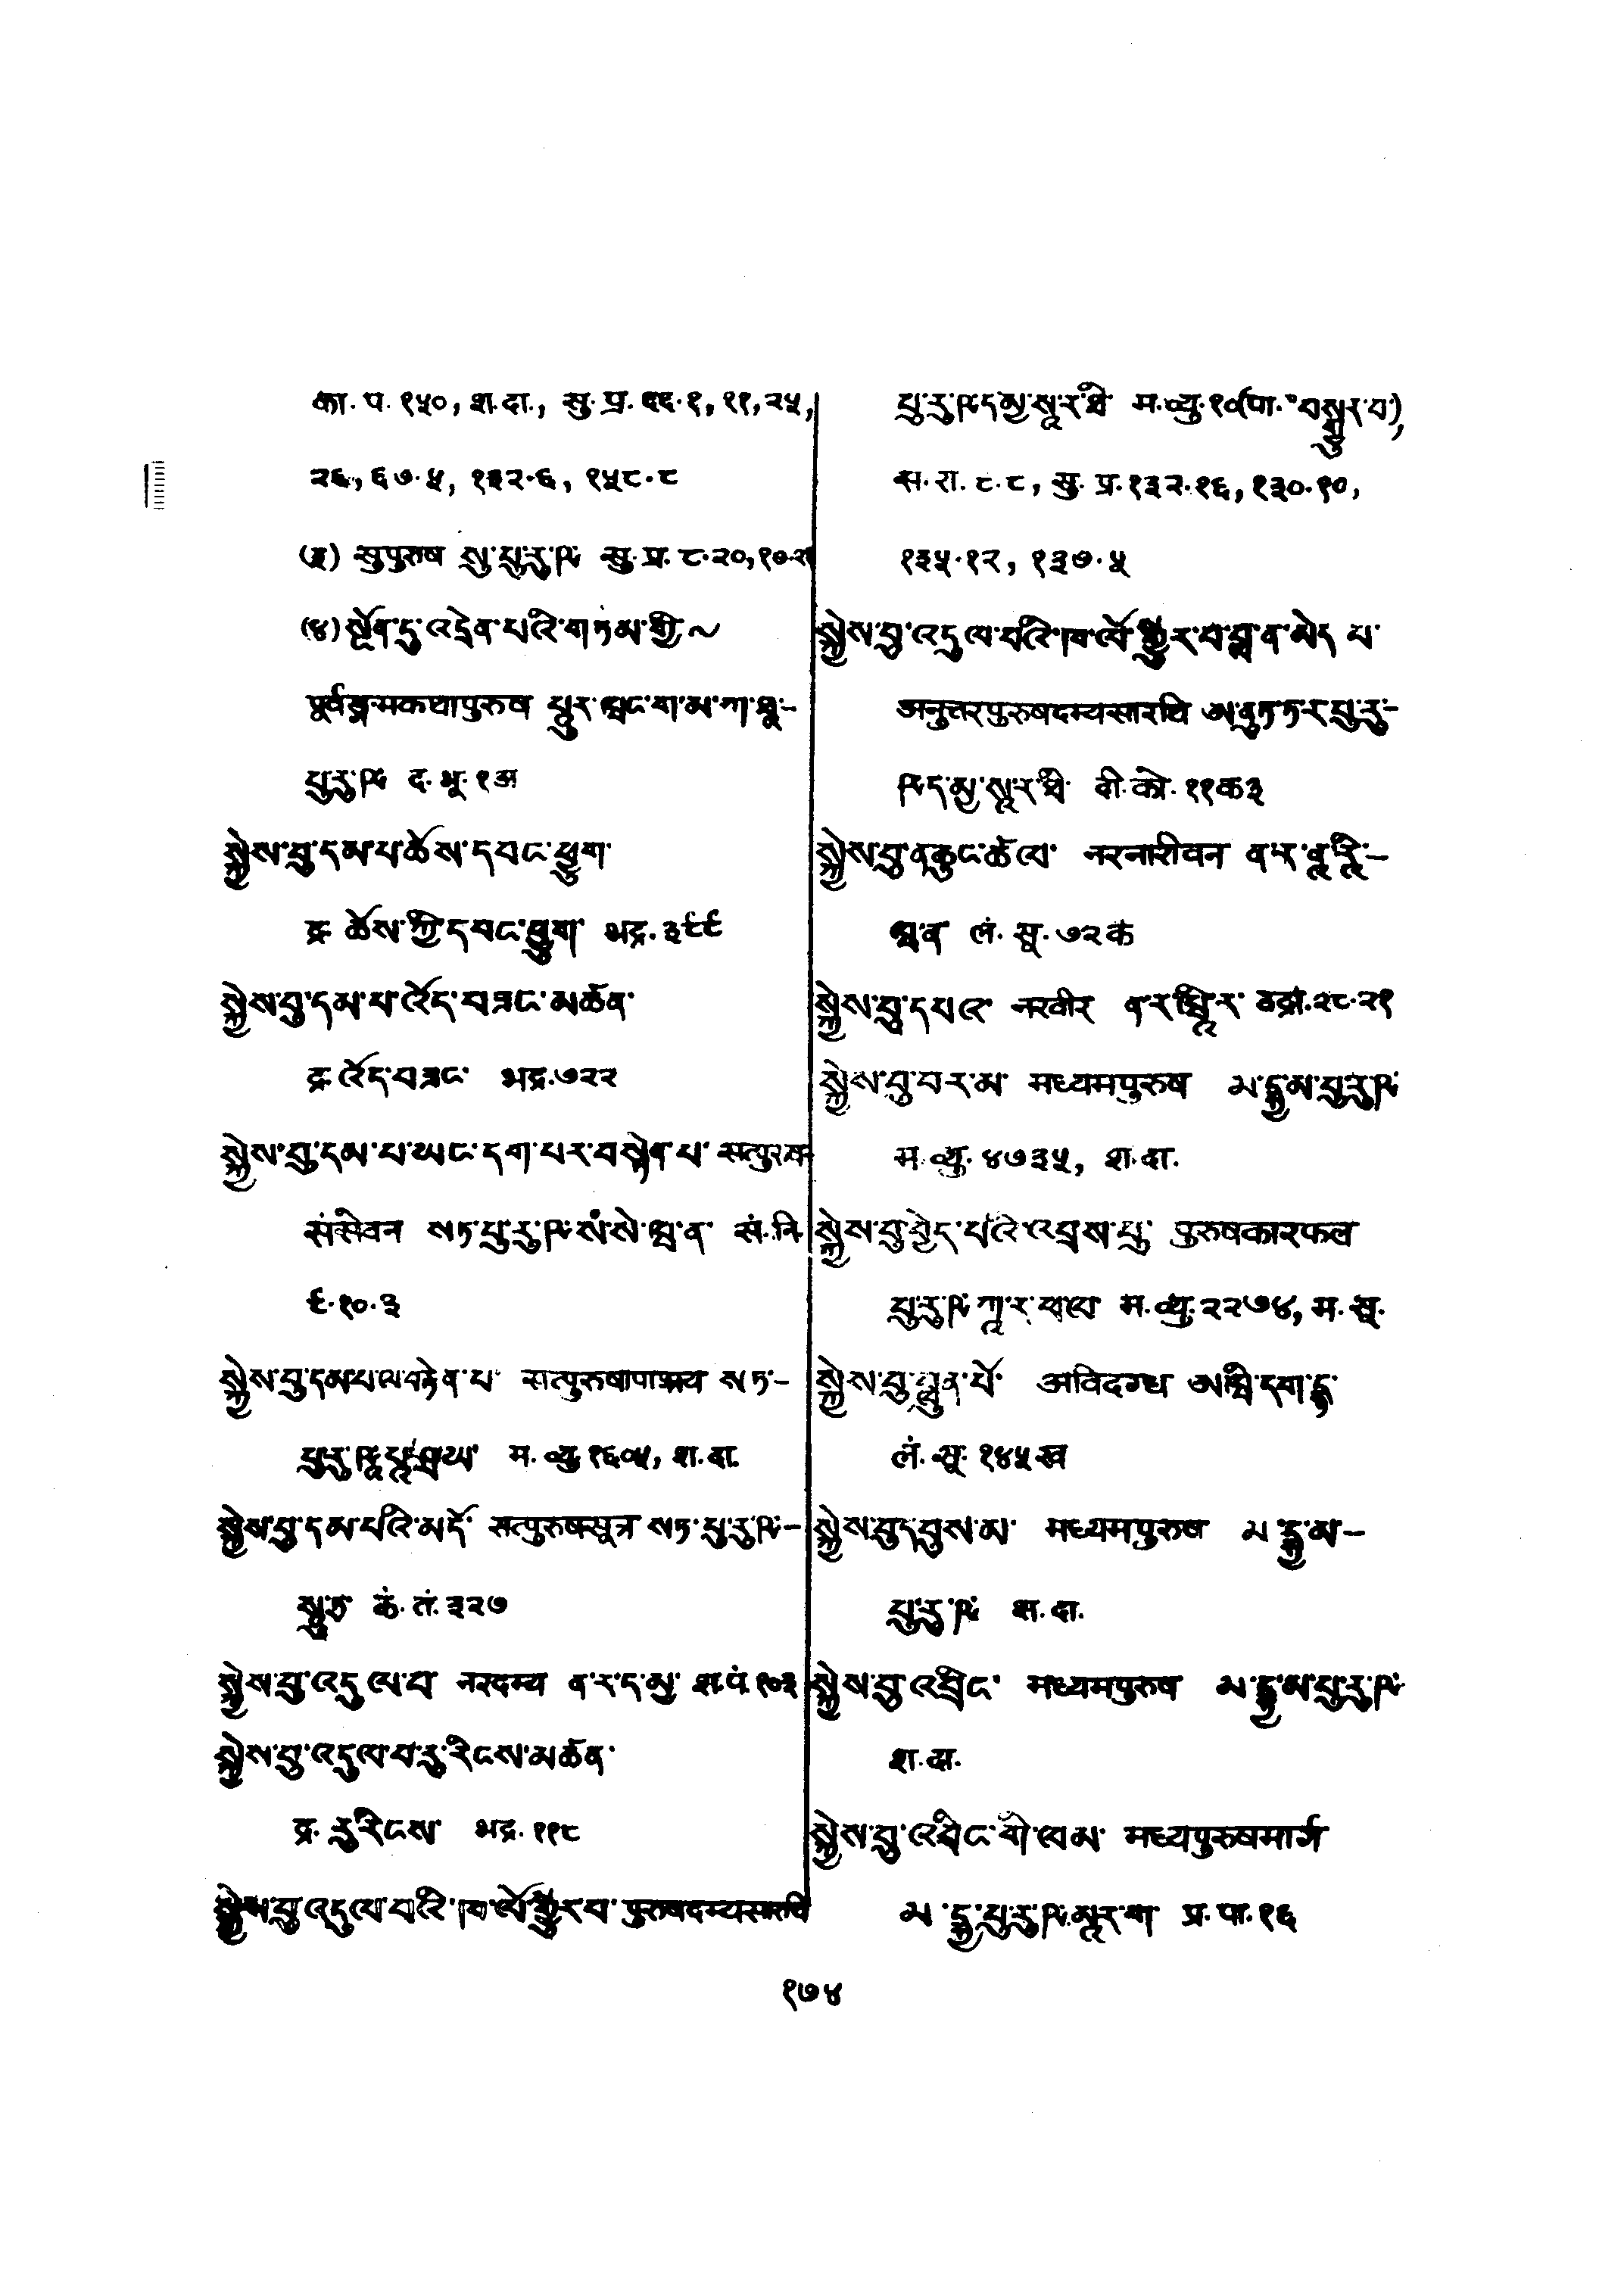 का. प. १५०, श.दा., सु. प्र. ९६.१, ११, २५,
२६, ६७.५, १३२.६, १५८.८
(३) सुपुरुष སུ་པུ་རུ་ཥ सु. प्र. ८.२०, १०.२१
(४) སྔོན་དུ་འདྲེན་པའི་གཏམ་གྱི་~
पूर्वङ्गमकथापुरुष པཱུར་ཝངྒ་མ་ཀ་ཐཱ་-
པུ་རུ་ཥ द. भू. १अ
སྐྱེས་བུ་དམ་པ་ཆོས་དབང་ཕྱུག་
द्र. ཆོས་ཀྱི་དབང་ཕྱུག भद्र. ३९९
སྐྱེས་བུ་དམ་པ་འོད་བཟང་མཚན་
द्र. འོད་བཟང་ भद्र. ७२२
སྐྱེས་བུ་དམ་པ་ཡང་དག་པར་བསྟེན་པ་ सत्पुरुष-
संसेवन སཏ་པུ་རུ་ཥ་སཾ་སེ་ཝ་ན་ सं. नि.
९.१०.३
སྐྱེས་བུ་དམ་པ་ལ་བརྟེན་པ་ सत्पुरुषापाश्रय སཏ་-
པུ་རུ་ཥཱ་པཱ་ཤྲ་ཡ་ म. व्यु. १६०५, श. दा.
སྐྱེས་བུ་དམ་པའི་མདོ་ सत्पुरुषसूत्र སཏ་པུ་རུ་ཥ་-
སཱུ་ཏྲ क. तं. ३२७
སྐྱེས་བུ་འདུལ་བ་ नरदम्य ན་ར་ད་མྱ་ श. पं. १०३
སྐྱེས་བུ་འདུལ་བ་རུ་རིངས་མཚན་
द्र. རུ་རིངས་ भद्र. ११८
སྐྱེས་བུ་འདུལ་བའི་ཁ་ལོ་སྒྱུར་བ་ पुरुषदम्यसारथि
པུ་རུ་ཥ་ད་མྱ་སཱ་ར་ཐི་ म. व्यु. १० (पा. ° བསྒྱུར་བ་),
स. रा. ८.८, सु. प्र. १३२.१६, १३०.१०,
१३५.१२, १३७.५
སྐྱེས་བུ་འདུལ་བའི་ཁ་ལོ་སྒྱུར་བ་བླ་ན་མེད་པ་
अनुत्तरपुरुषदम्यसारथि ཨ་ནུཏ་ཏ་ར་པུ་རུ་-
ཥ་ད་མྱ་སཱ་ར་ཐི་ बी. को. ११क३
སྐྱེས་བུ་ན་ཆུང་ཚལ་ नरनारीवन ན་ར་ནཱ་རཱི་-
ཝ་ན लं. सू. ७२क
སྐྱེས་བུ་དཔའ་ नरवीर ན་ར་ཝཱི་ར་ वज्रा. २८.२१
སྐྱེས་བུ་བར་མ་ मध्यमपुरुष མ་དྷྱ་མ་པུ་རུ་ཥ
म. व्यु. ४७३५, श. दा.
སྐྱེས་བུ་བྱེད་པའི་འབྲས་བུ་ पुरुषकारफल
པུ་རུ་ཥ་ཀཱ་ར་ཕ་ལ म. व्यु. २२७४, म. सू.
སྐྱེས་བུ་བླུན་པོ་ अविदग्ध ཨ་ཝི་དག་དྷ་
लं. सू. १४५ख
སྐྱེས་བུ་དབུས་མ་ मध्यमपुरुष མ་དྷྱ་མ་-
པུ་རུ་ཥ श. दा.
སྐྱེས་བུ་འབྲིང་ मध्यमपुरुष མ་དྷྱ་མ་པུ་རུ་ཥ
श. दा.
སྐྱེས་བུ་འབྲིང་གི་ལམ་ मध्यपुरुषमार्ग
མ་དྷྱ་པུ་རུ་ཥ་མཱར་ག་ प्र. पा. १६
१७४